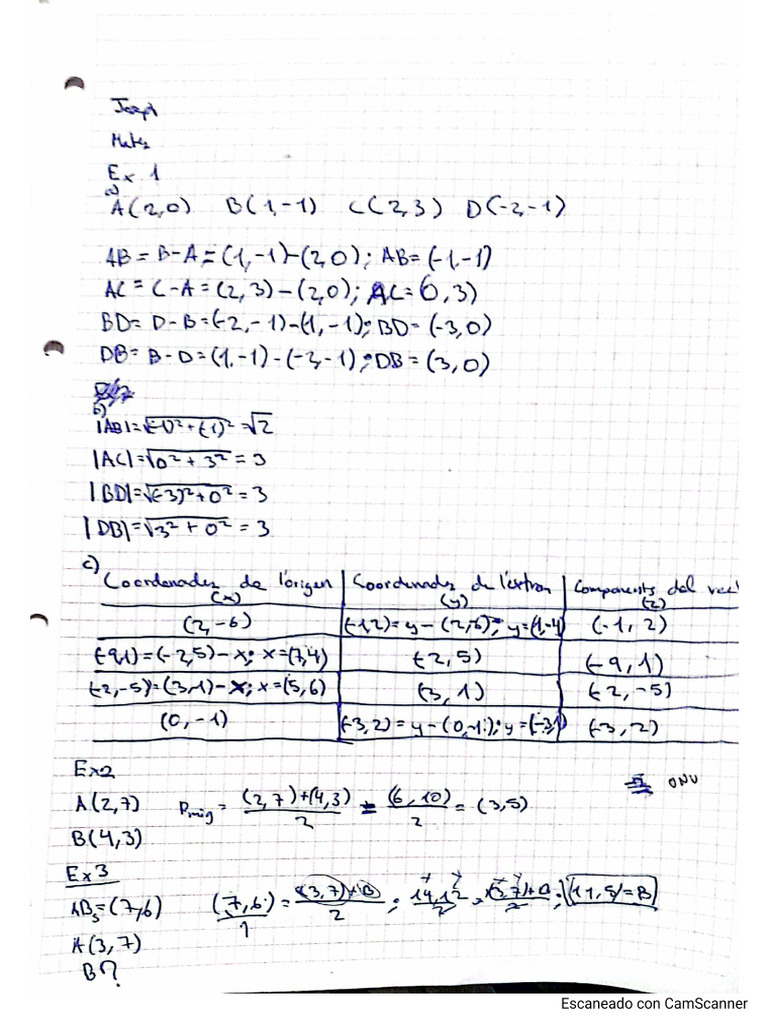 Josep
Mates
Ex 1
a)
A(2,0) B(1,-1) C(2,3) D(-2,-1)
AB = B-A = (1,-1)-(2,0); AB=(-1,-1)
AC = C-A = (2,3)-(2,0); AC=(0,3)
BD = D-B = (-2,-1)-(1,-1); BD=(-3,0)
DB = B-D = (1,-1)-(-2,-1); DB=(3,0)
b)
|AB|=√(-1)²+(-1)² = √2
|AC|=√0²+3² = 3
|BD|=√(-3)²+0² = 3
|DB|=√3²+0² = 3
c)
Coordenades de l'origen (x) | Coordenades de l'extrem (y) | Components del vect (z)
(2,-6) | (-1,2)=y-(2,-6); y=(1,-4) | (-1,2)
(-9,1)=(-2,5)-x; x=(7,4) | (-2,5) | (-9,1)
(-2,-5)=(3,1)-x; x=(5,6) | (3,1) | (-2,-5)
(0,-1) | (-3,2)=y-(0,-1); y=(-3,1) | (-3,2)
Ex2
A(2,7) Pmig = (2,7)+(4,3) / 2 = (6,10) / 2 = (3,5)
B(4,3)
Ex3
(7,6) / 1 = (3,7)+B / 2; 14,12 = (3,7)+B; (11,5)=B
A(3,7)
B?
Escaneado con CamScanner